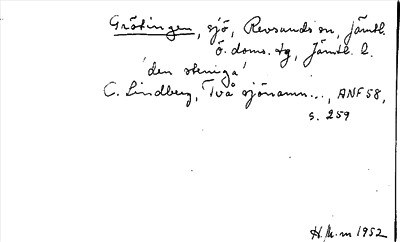 Grötingen, sjö, Revsunds sn, Jämtl.
ö. doms. tg, Jämtl. l.
'den steniga'
C. Lindberg, Två sjönamn..., ANF 58,
s. 259
H. M-m 1952